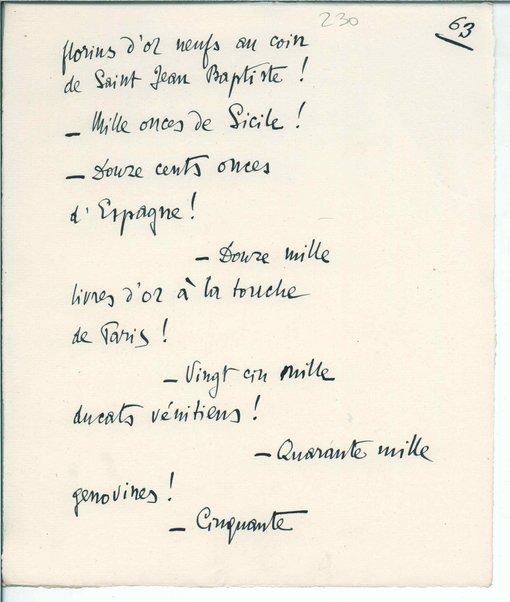 230
63
florins d'or neufs au coin
de Saint Jean Baptiste !
— Mille onces de Sicile !
— Douze cents onces
d'Espagne !
— Douze mille
livres d'or à la touche
de Paris !
— Vingt cin mille
ducats vénitiens !
— Quarante mille
genovines !
— Cinquante